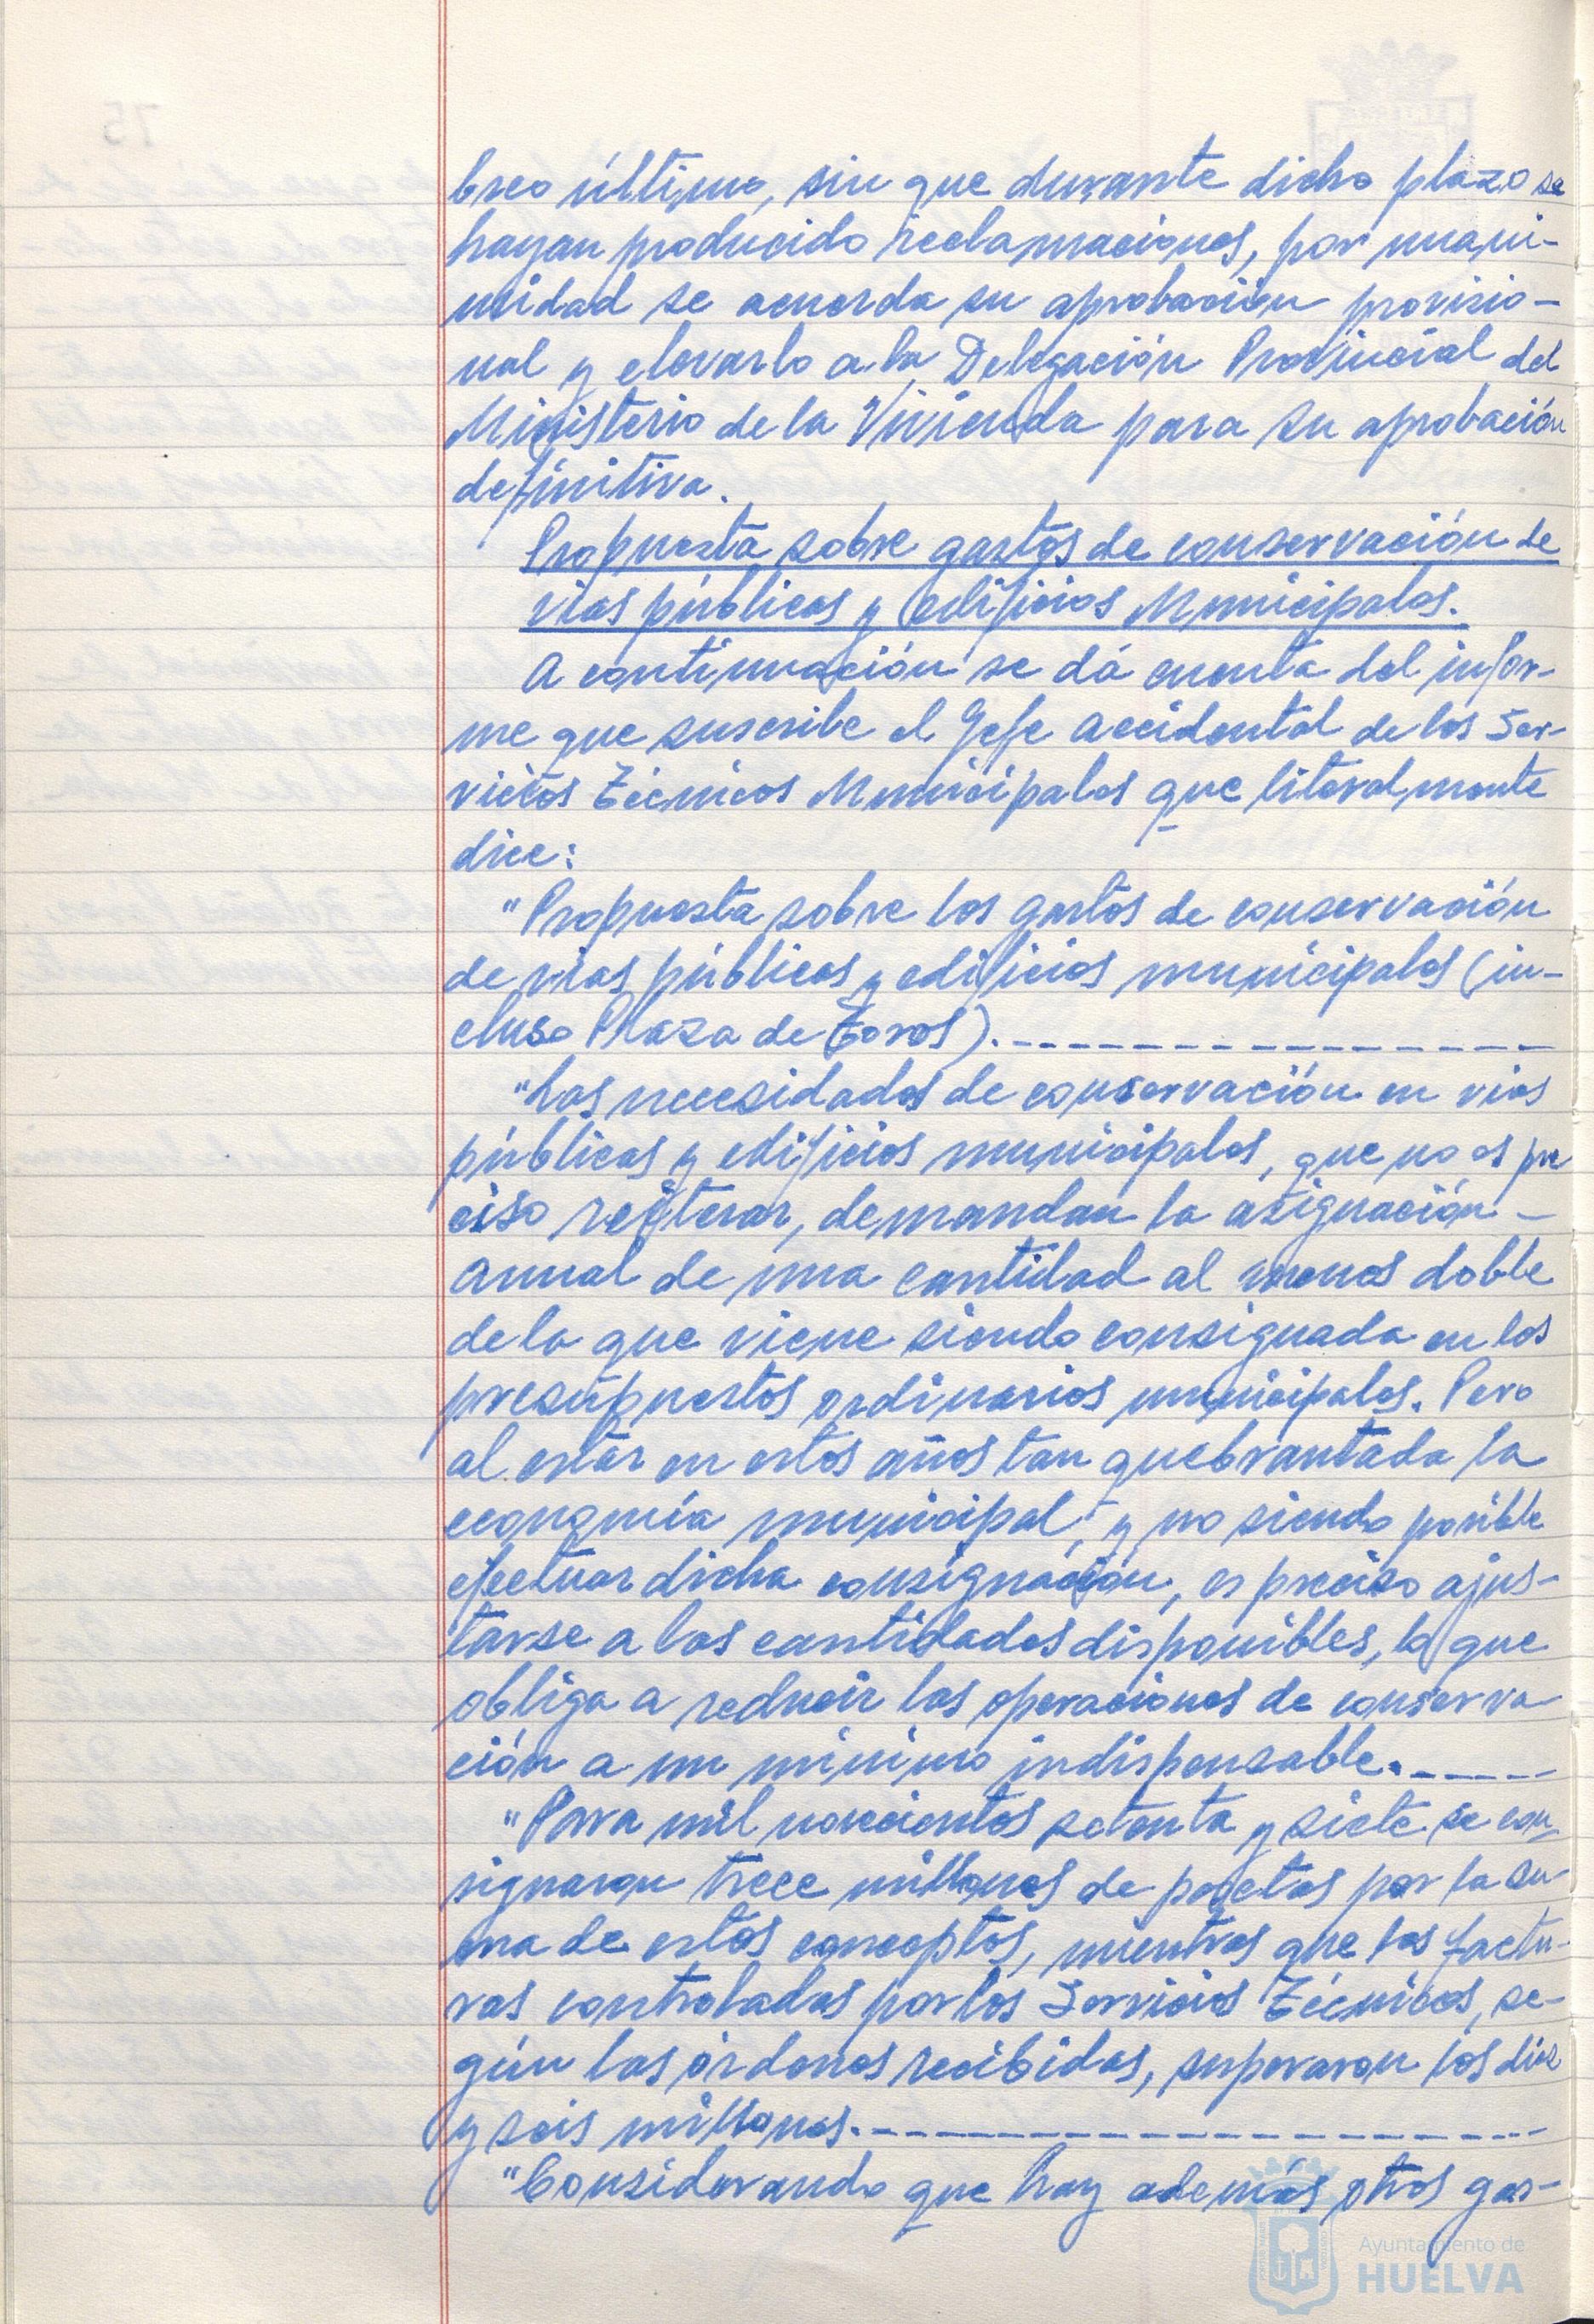 breo último, sin que durante dicho plazo se
hayan producido reclamaciones, por unani-
midad se acuerda su aprobación provisio-
nal y elevarlo a la Delegación Provincial del
Ministerio de la Vivienda para su aprobación
definitiva.
Propuesta sobre gastos de conservación de
vias públicas y edificios Municipales.
A continuación se dá cuenta del infor-
me que suscribe el Gefe accidental de los Ser-
vicios Técnicos Municipales que literalmente
dice:
"Propuesta sobre los gastos de conservación
de vias públicas y edificios municipales (in-
cluso Plaza de Toros).----------------
"Las necesidades de conservación en vias
públicas y edificios municipales, que no es pre
ciso reiterar, demandan la asignación -
anual de una cantidad al menos doble
de la que viene siendo consignada en los
presupuestos ordinarios municipales. Pero
al estar en estos años tan quebrantada la
economía municipal, y no siendo posible
efectuar dicha consignación, es preciso ajus-
tarse a las cantidades disponibles, lo que
obliga a reducir las operaciones de conserva
ción a un mínimo indispensable.-----
"Para mil novecientos setenta y siete se con-
signaron trece millones de pesetas por la su-
ma de estos conceptos, mientras que las factu-
ras controladas por los Servicios Técnicos, se-
gún las órdenes recibidas, superaron los diez
y seis millones.--------------------
"Considerando que hay además otros gas-
Ayuntamiento de
HUELVA
75